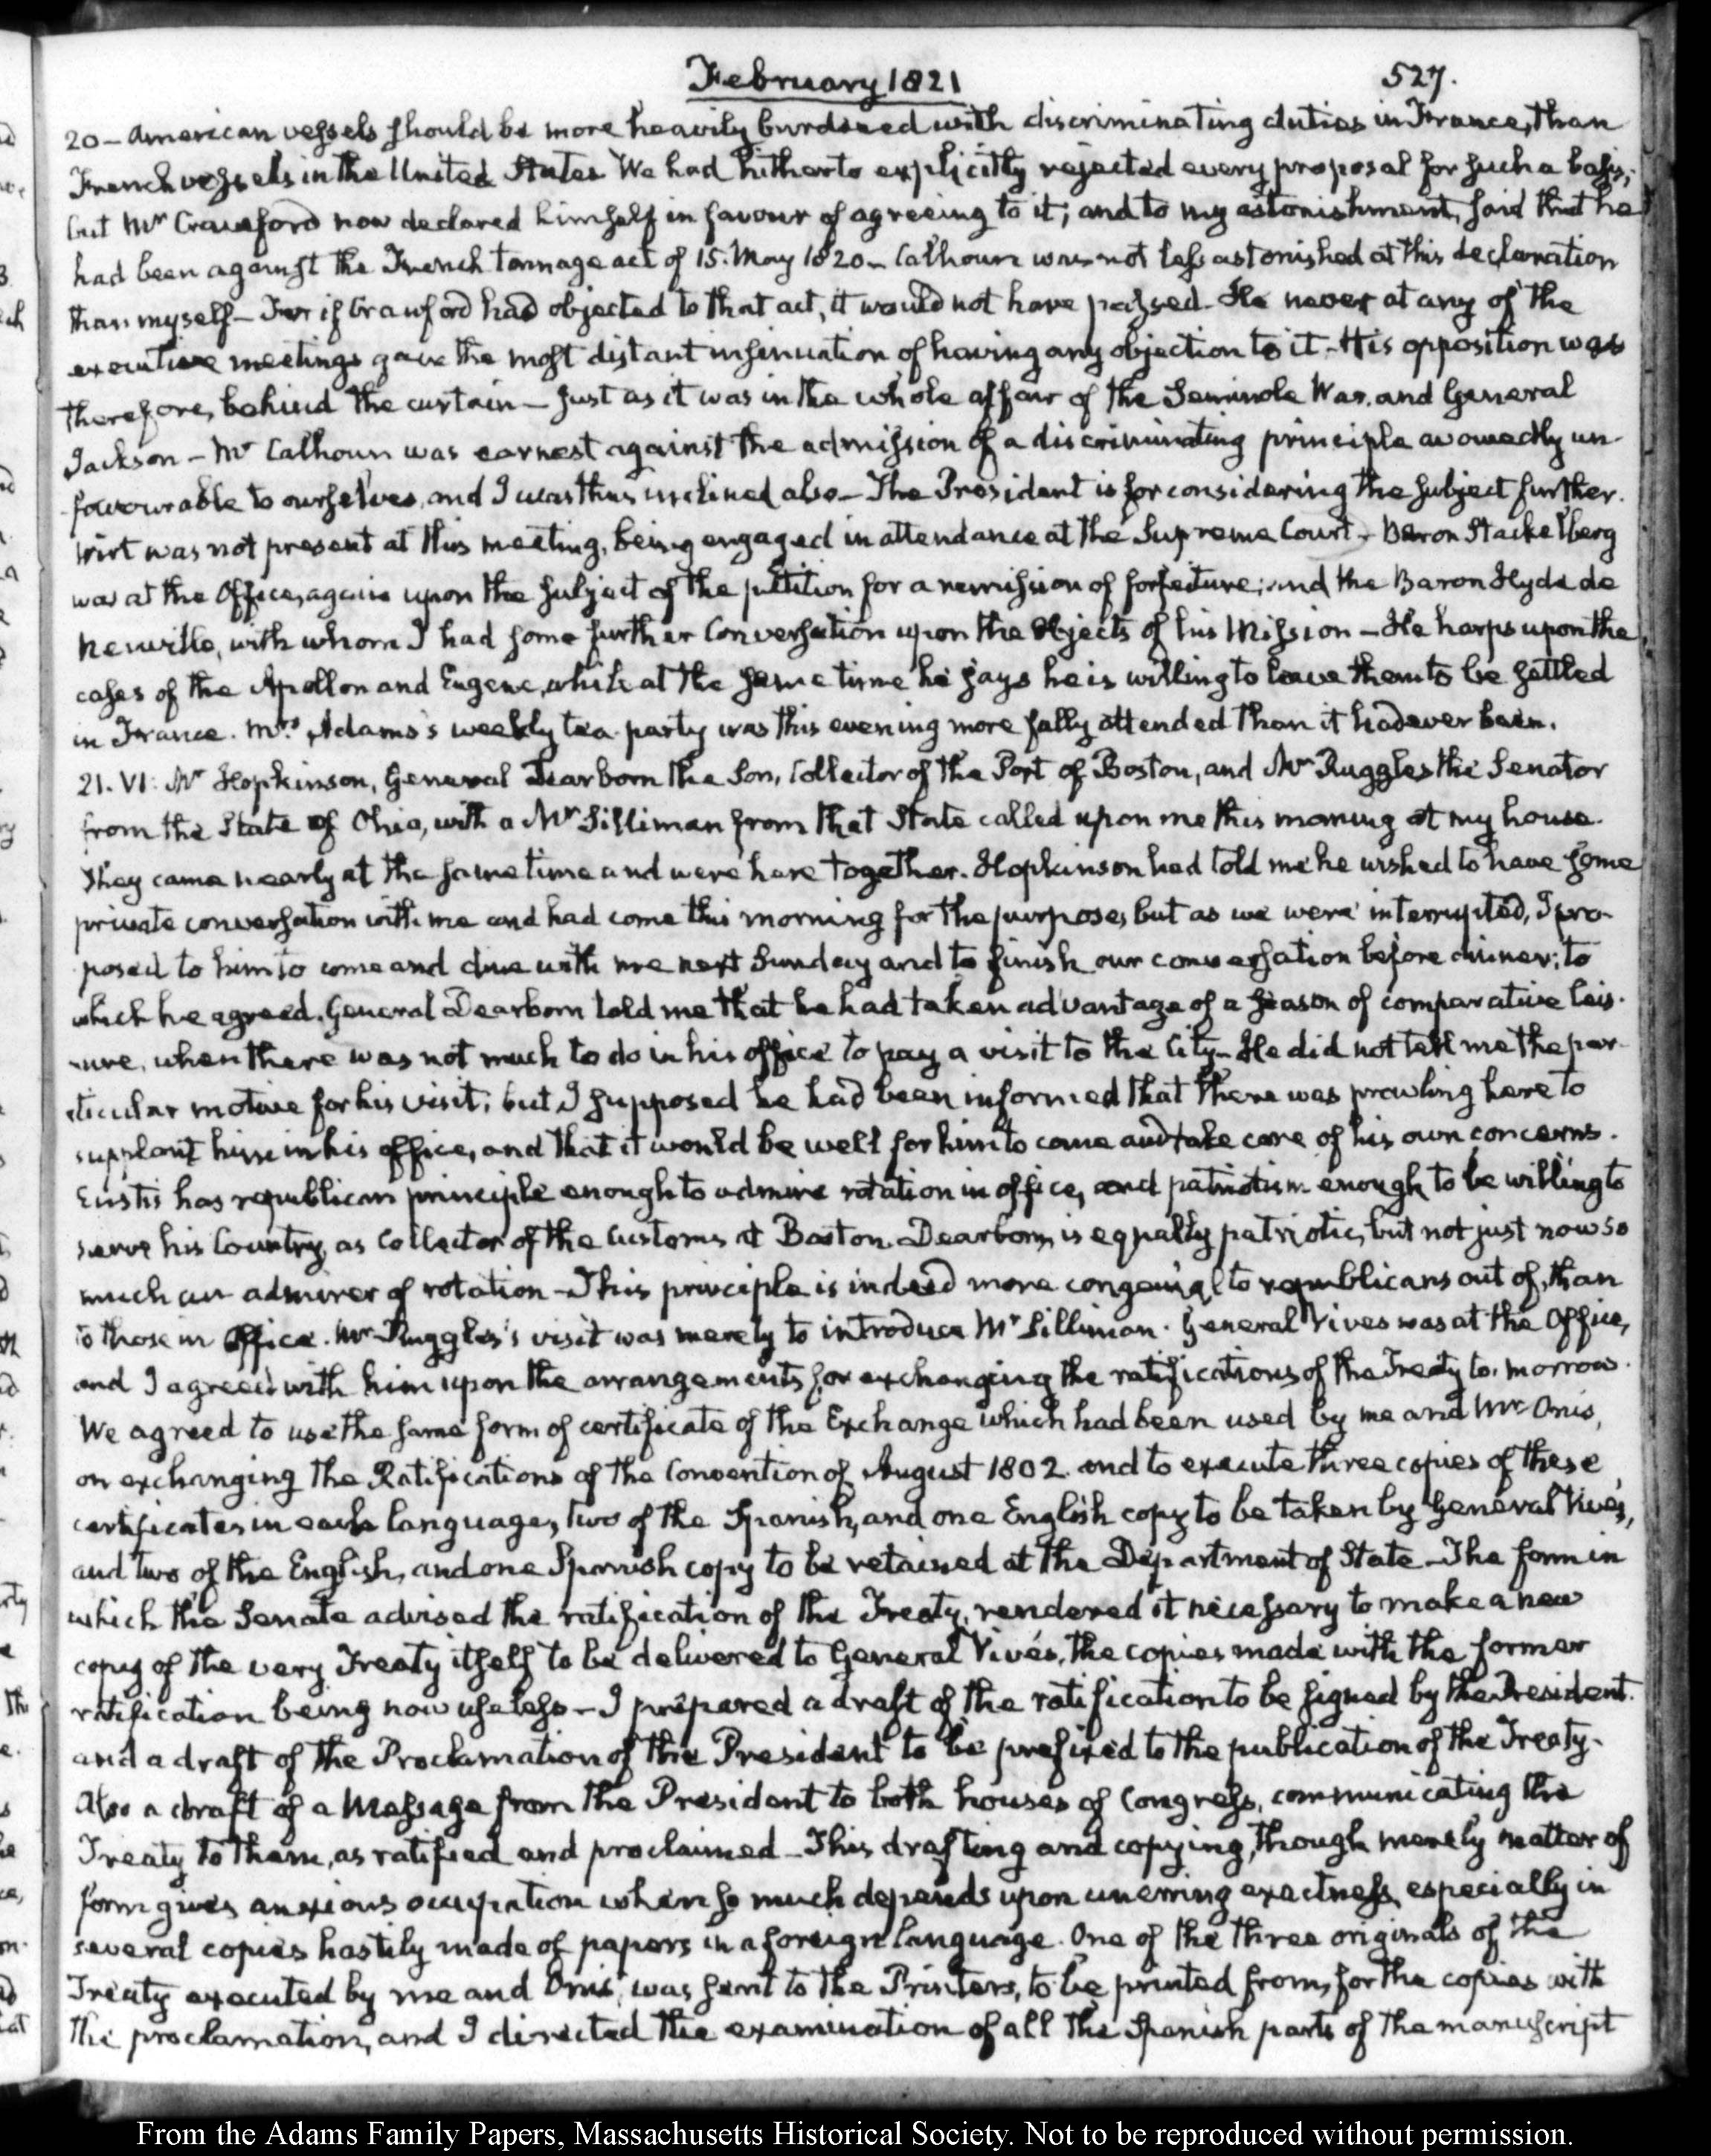 February 1821
527.
20 – American vessels should be more heavily burdened with discriminating duties in France, than
French vessels in the United States We had hitherto explicitly rejected every proposal for such a basis;
but Mr Crawford now declared himself in favour of agreeing to it; and to my astonishment, said that he
had been against the French tonnage act of 15. May 1820 – Calhoun was not less astonished at this declaration
than myself – For if Crawford had objected to that act, it would not have passed – He never at any of the
executive meetings gave the most distant insinuation of having any objection to it – His opposition was
therefore, behind the curtain – Just as it was in the whole affair of the Seminole War, and General
Jackson – Mr Calhoun was earnest against the admission of a discriminating principle avowedly un-
favourable to ourselves, and I was thus inclined also – The President is for considering the subject further.
Wirt was not present at this meeting, being engaged in attendance at the Supreme Court – Baron Stackelberg
was at the Office, again upon the subject of the petition for a remission of forfeiture; and the Baron Hyde de
Neuville, with whom I had some further Conversation upon the Objects of his Mission – He harps upon the
cases of the Apollon and Eugene, while at the same time he says he is willing to leave them to be settled
in France. Mrs. Adams's weekly tea party was this evening more fully attended than it had ever been.
21. VI: Mr Hopkinson, General Dearborn the Son, Collector of the Port of Boston, and Mr Ruggles the Senator
from the State of Ohio, with a Mr Silliman from that State called upon me this morning at my house.
They came nearly at the same time and were here together. Hopkinson had told me he wished to have some
private conversation with me and had come this morning for the purpose, but as we were interrupted, I pro-
posed to him to come and dine with me next Sunday and to finish our conversation before dinner; to
which he agreed. General Dearborn told me that he had taken advantage of a season of comparative leis-
ure, when there was not much to do in his office to pay a visit to the City – He did not tell me the par-
ticular motive for his visit; but I supposed he had been informed that there was prowling here to
supplant him in his office, and that it would be well for him to come and take care of his own concerns.
Eustis has republican principle enough to admire rotation in office, and patriotism enough to be willing to
serve his Country, as Collector of the Customs at Boston. Dearborn, is equally patriotic, but not just now so
much an admirer of rotation – This principle is indeed more congenial to republicans out of, than
to those in Office. Mr Ruggles's visit was merely to introduce Mr Silliman. General Vives was at the Office,
and I agreed with him upon the arrangements for exchanging the ratifications of the Treaty to-morrow.
We agreed to use the same form of certificate of the Exchange which had been used by me and Mr Onis,
on exchanging the Ratifications of the Convention of August 1802. and to execute three copies of these
certificates in each language, two of the Spanish, and one English copy to be taken by General Vivés,
and two of the English, and one Spanish copy to be retained at the Department of State – The form in
which the Senate advised the ratification of the Treaty, rendered it necessary to make a new
copy of the very Treaty itself to be delivered to General Vivés, the copies made with the former
ratification being now useless – I prepared a draft of the ratification to be signed by the President.
and a draft of the Proclamation of the President to be prefixed to the publication of the Treaty –
Also a draft of a Message from the President to both houses of Congress, communicating the
Treaty to them, as ratified and proclaimed – This drafting and copying, though merely matter of
form gives anxious occupation when so much depends upon unerring exactness, especially in
several copies hastily made of papers in a foreign language. One of the three originals of the
Treaty executed by me and Onis, was sent to the Printers, to be printed from, for the copies with
the proclamation, and I directed the examination of all the Spanish parts of the manuscript
From the Adams Family Papers, Massachusetts Historical Society. Not to be reproduced without permission.